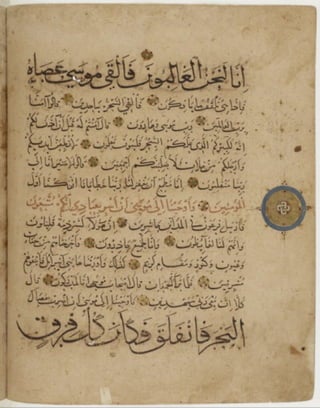 إنا لنحن الغالبون فألقى موسى عصاه
فإذا هي تلقف ما يأفكون فألقي السحرة ساجدين قالوا آمنا
برب العالمين رب موسى وهارون قال آمنتم له قبل أن آذن لكم
إنه لكبيركم الذي علمكم السحر فلسوف تعلمون لأقطعن أيديكم
وأرجلكم من خلاف ولأصلبنكم أجمعين قالوا لا ضير إنا إلى
ربنا منقلبون إنا نطمع أن يغفر لنا ربنا خطايانا أن كنا أول
المؤمنين وأوحينا إلى موسى أن أسر بعبادي إنكم متبعون
فأرسل فرعون في المدائن حاشرين إن هؤلاء لشرذمة قليلون
وإنهم لنا لغائظون وإنا لجميع حاذرون فأخرجناهم من جنات
وعيون وكنوز ومقام كريم كذلك وأورثناها بني إسرائيل فأتبعوهم
مشرقين فلما تراءى الجمعان قال أصحاب موسى إنا لمدركون قال
كلا إن معي ربي سيهدين فأوحينا إلى موسى أن اضرب بعصاك
البحر فانفلق فكان كل فرق